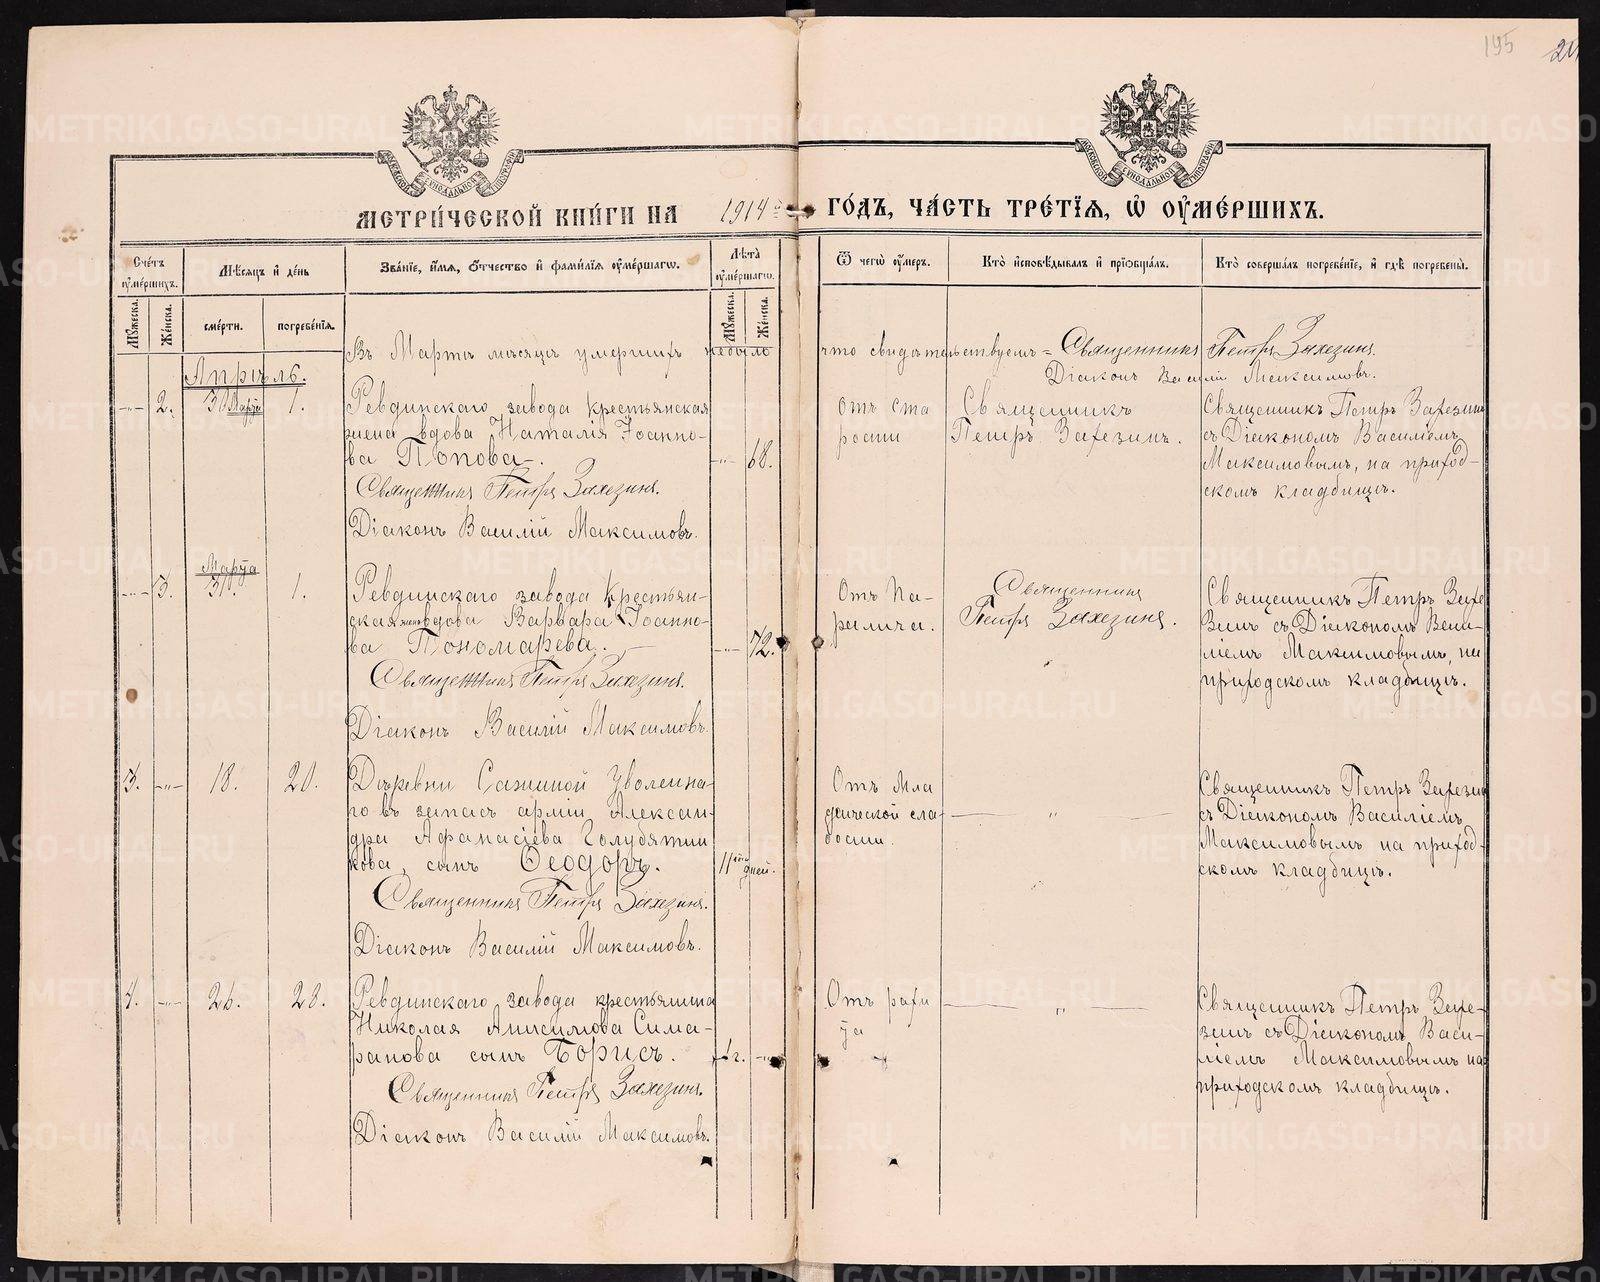 195
МЕТРИ́ЧЕСКОЙ КНИ́ГИ НА 1914й ГО́ДЪ, ЧА́СТЬ ТРЕ́ТІѦ, Ѡ ОУ҆МЕ́РШИХЪ.
Сче́тъ оу҆ме́ршихъ.
Мѣ́сѧцъ и҆ де́нь
Зва́нїе, и҆́мѧ, ѻ҆́тчество и҆ фами́лїѧ оу҆ме́ршагѡ.
Лѣ́та оу҆ме́ршагѡ.
Ѿ чегѡ̀ оу҆́меръ.
Кто̀ и҆сповѣ́дывалъ и҆ прїѡбща́лъ.
Кто̀ соверша́лъ погребе́нїе, и҆ гдѣ̀ погребены̀.
Мꙋ́жеска.
Же́нска.
сме́рти.
погребе́нїѧ.
Мꙋ́жеска.
Же́нска.
Въ Мартѣ мѣсяцѣ умершихъ небыло
что свидѣтельствуемъ = Священникъ Петръ Захезинъ.
Діаконъ Василій Максимовъ.
Апрѣль.
2. 30 Марта 1.
Ревдинскаго завода крестьянская
жена вдова Наталія Іоанно-
ва Попова.
68.
Священникъ Петръ Захезинъ.
Діаконъ Василій Максимовъ.
Отъ ста
рости
Священникъ
Петръ Захезинъ.
Священникъ Петръ Захезинъ
съ Діакономъ Василіемъ
Максимовымъ, на приход-
скомъ кладбищѣ.
Марта
3. 31. 1.
Ревдинскаго завода крестьян-
ская жена вдова Варвара Іоанно-
ва Пономарева.
72.
Священникъ Петръ Захезинъ.
Діаконъ Василій Максимовъ.
Отъ Па-
ралича.
Священникъ
Петръ Захезинъ.
Священникъ Петръ Захе
зинъ съ Діакономъ Васи-
ліемъ Максимовымъ, на
приходскомъ кладбищѣ.
3. 18. 20.
Дѣревни Сажиной Уволенна-
го въ запасъ арміи Алексан-
дра Афанасіева Голубятни
кова, сынъ Ѳеодоръ.
11 дней.
Священникъ Петръ Захезинъ.
Діаконъ Василій Максимовъ.
Отъ Мла
денческой сла-
бости.
Священникъ Петръ Захезинъ
съ Діакономъ Василіемъ
Максимовымъ на приход-
скомъ кладбищѣ.
4. 26. 28.
Ревдинскаго завода крестьянина
Николая Анисимова Сима-
ранова сынъ Борисъ.
1 г.
Священникъ Петръ Захезинъ.
Діаконъ Василій Максимовъ.
Отъ рахи
та
Священникъ Петръ Захе-
зинъ съ Діакономъ Васи-
ліемъ Максимовымъ на
приходскомъ кладбищѣ.
METRIKI.GASO-URAL.RU